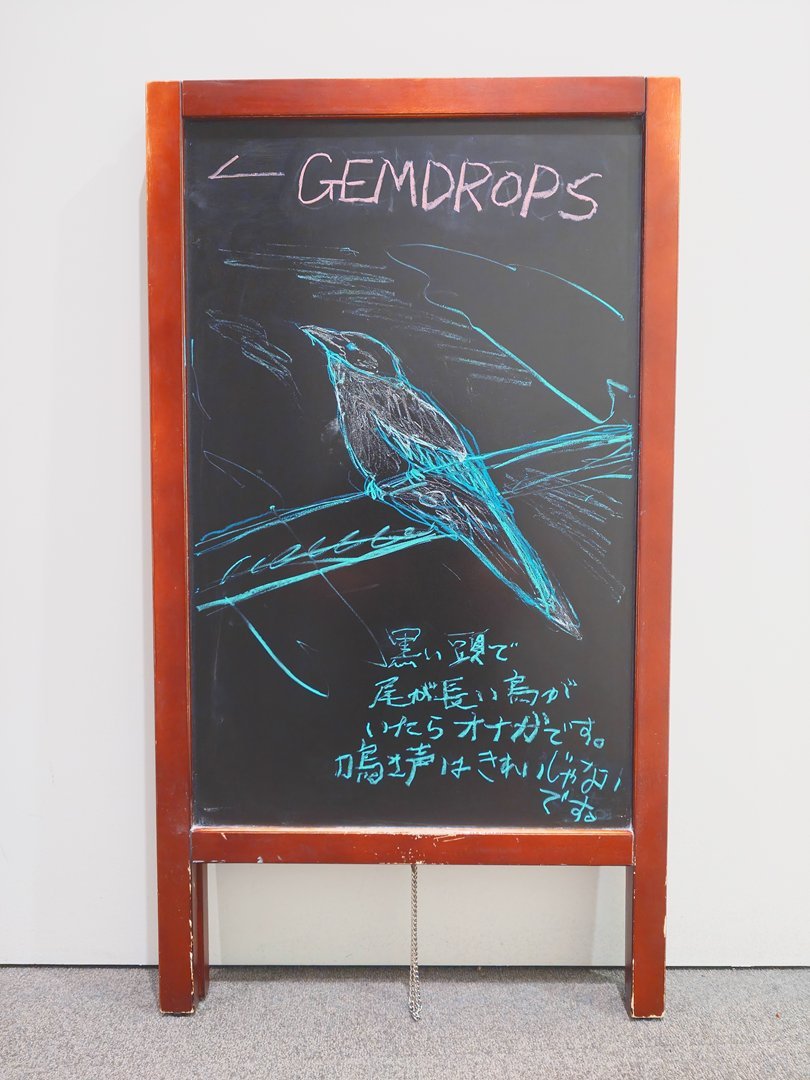 ← GEMDROPS
黒い頭で
尾が長い鳥が
いたらオナガです。
鳴き声はきれいじゃない
です。